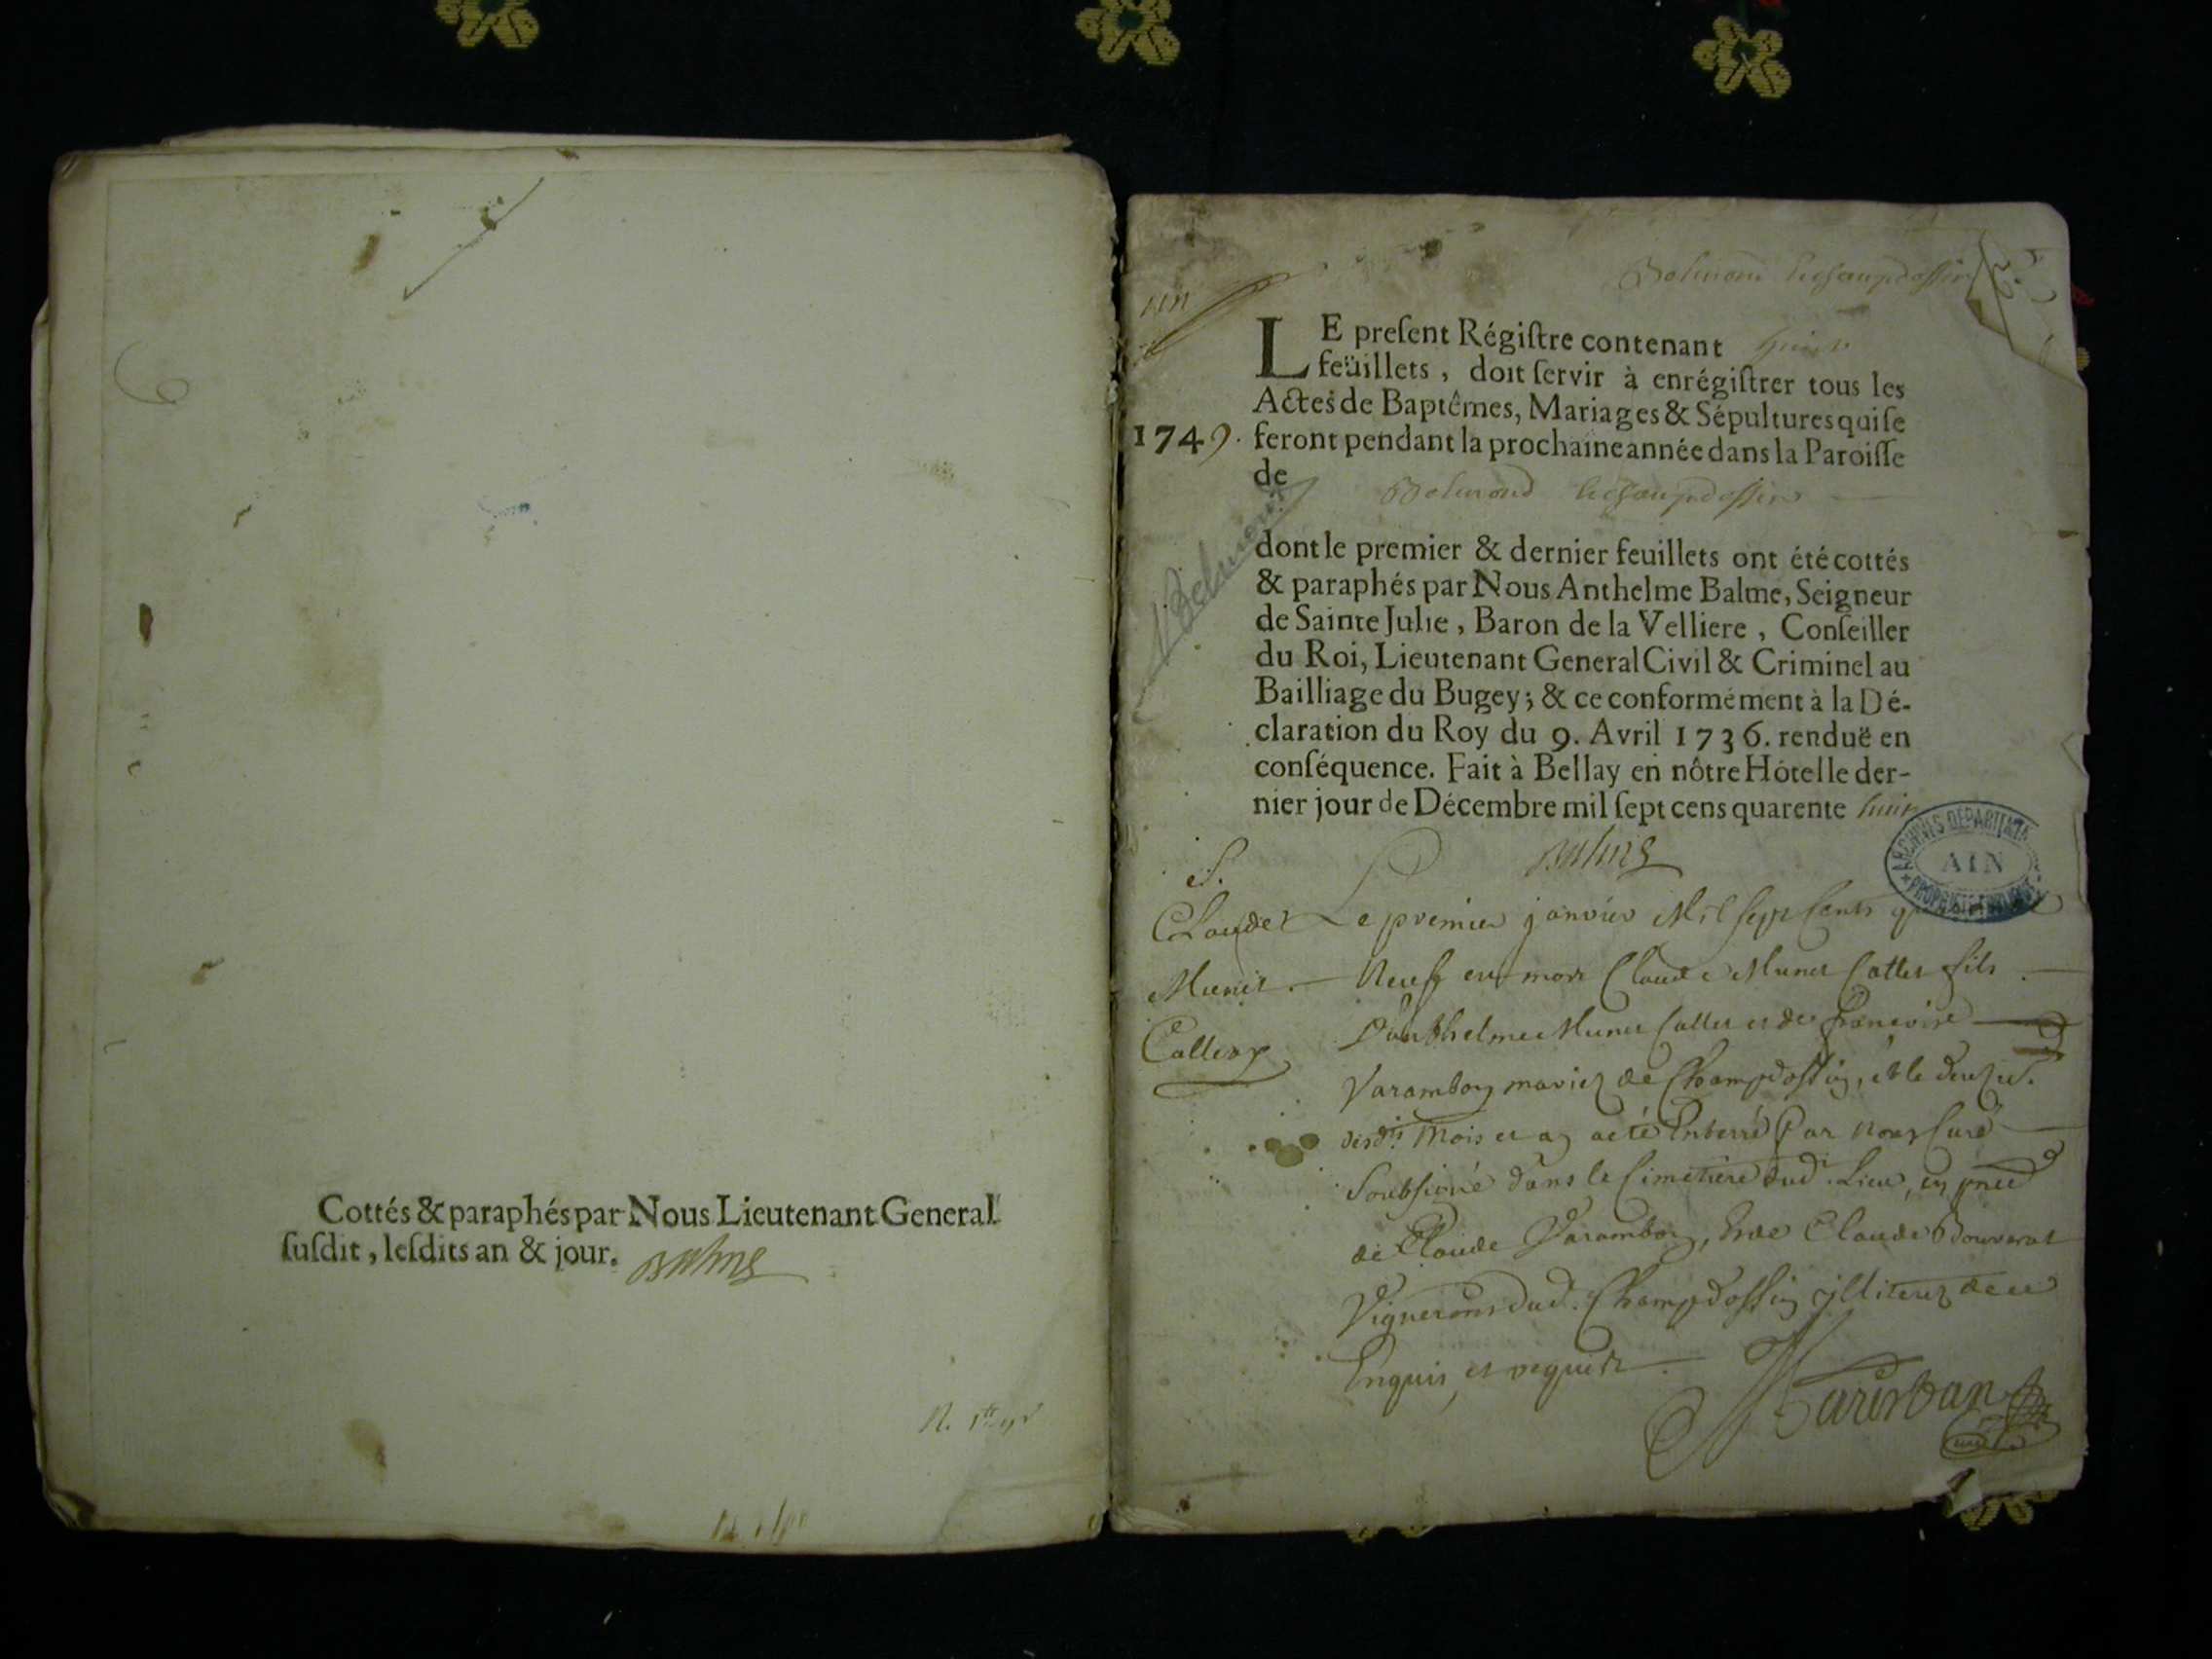 Cottés & paraphés par Nous Lieutenant General
suſdit, leſdits an & jour. Balme
Belmond
un
LE preſent Régiſtre contenant huit
feüillets, doit ſervir à enrégiſtrer tous les
Actes de Baptêmes, Mariages & Sépultures qui ſe
1749. feront pendant la prochaine année dans la Paroiſſe
de
Belmond
Belmont
dont le premier & dernier feuillets ont été cottés
& paraphés par Nous Anthelme Balme, Seigneur
de Sainte Julie, Baron de la Velliere, Conſeiller
du Roi, Lieutenant General Civil & Criminel au
Bailliage du Bugey; & ce conformément à la Dé-
claration du Roy du 9. Avril 1736. renduë en
conſéquence. Fait à Bellay en nôtre Hôtel le der-
nier jour de Décembre mil ſept cens quarente huit
Balme
ARCHIVES DEPARTEM
AIN
PROPRIETE PUBLIQUE
S.
Claude
Munet
Callet
Le premier janvier Mil sept cents
Neuf est mort Claude Munet Callet fils
D'anthelme Munet Callet et de francoise
Varamboy mariez de Champdossin, et le deuz
desd.ts Mois et an a eté Enterré Par nous Curé
Soubsigné dans le Cimetiere dud. Lieu, en
de Claude Varamboy, et de Claude Bouverat
Vignerons dud. Champdossin illiterez de ce
Enquis et requis